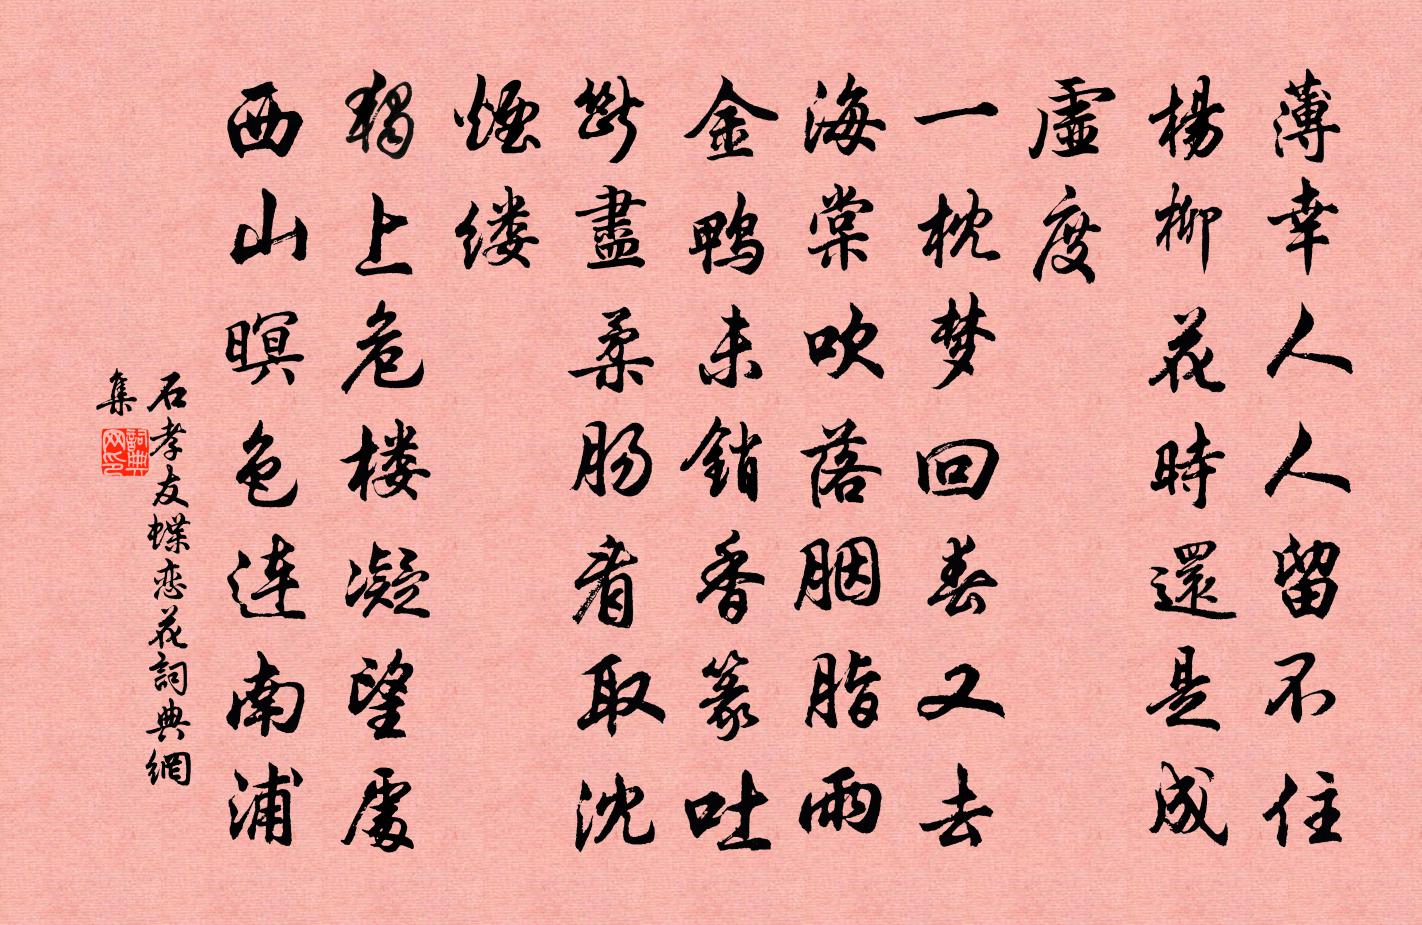 薄幸人人留不住
楊柳花時還是成
虛度
一枕梦回春又去
海棠吹落胭脂雨
金鸭未銷香篆吐
斷盡柔肠看取沈
煙缕
獨上危楼凝望處
西山暝色连南浦
石孝友蝶恋花詞典網
集
詞典网印